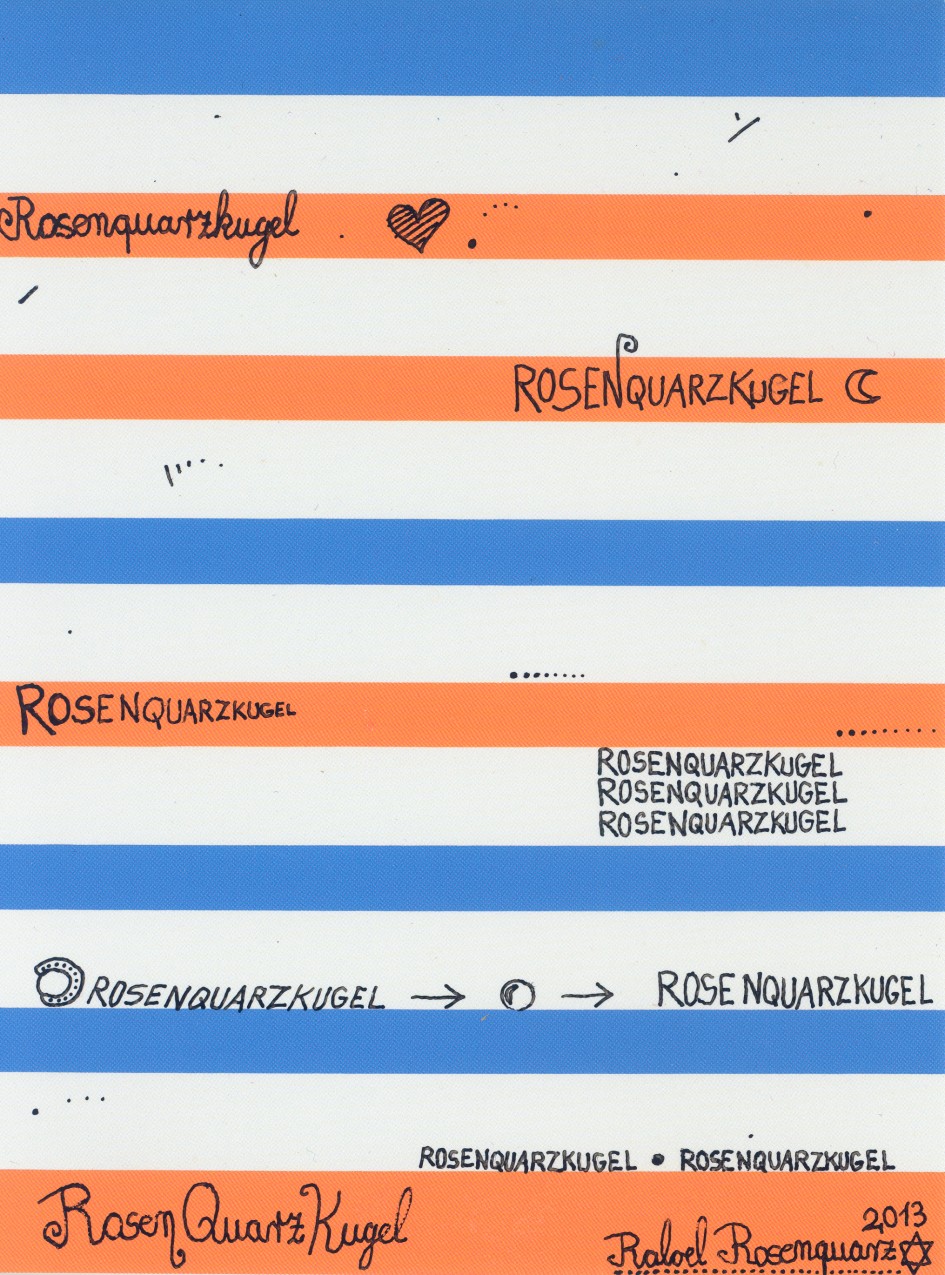 Rosenquarzkugel
ROSENQUARZKUGEL
ROSENQUARZKUGEL
ROSENQUARZKUGEL
ROSENQUARZKUGEL
ROSENQUARZKUGEL
ROSENQUARZKUGEL → → ROSENQUARZKUGEL
ROSENQUARZKUGEL • ROSENQUARZKUGEL
RosenQuarzKugel
2013
Rosenquarz